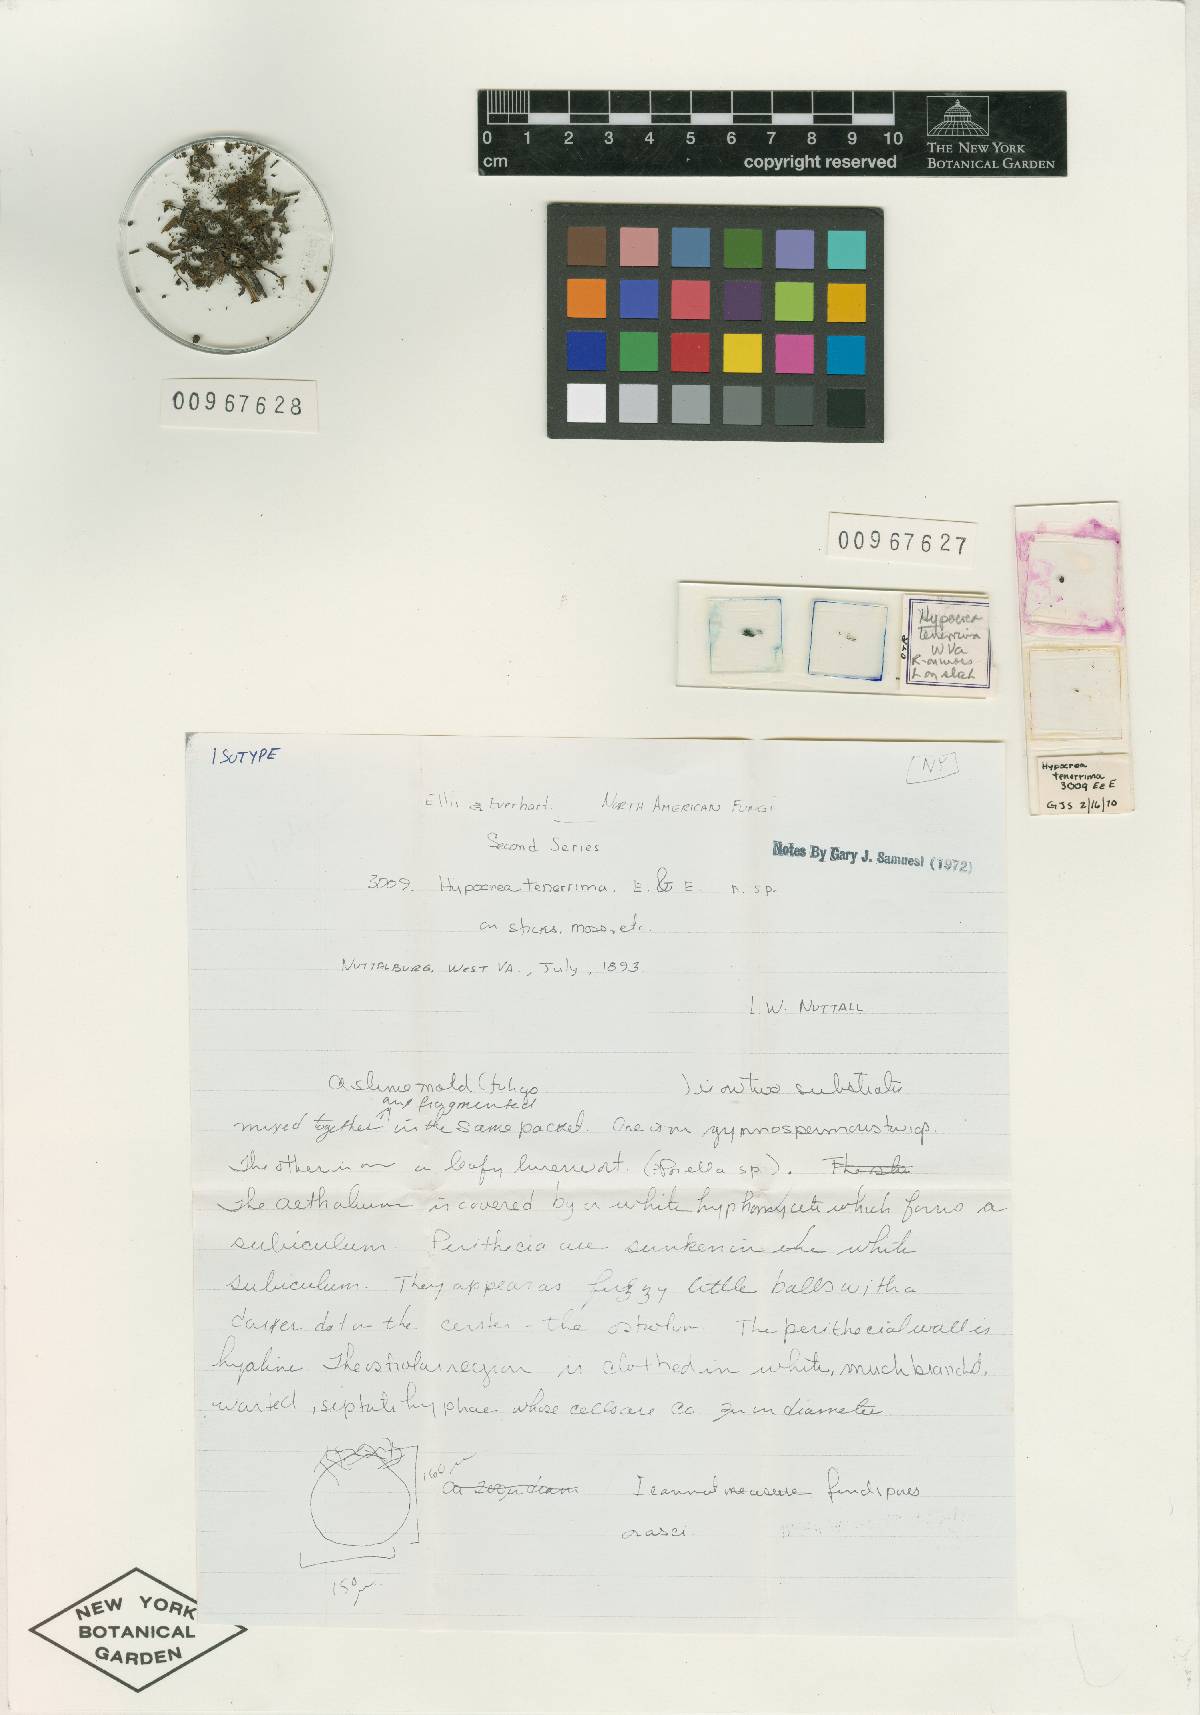 0 1 2 3 4 5 6 7 8 9 10
cm
copyright reserved
THE NEW YORK
BOTANICAL GARDEN
00967628
00967627
Hypocrea
tenerrima
W Va
L on slah
Hypocrea
tenerrima
3009 E&E
GJS 2/16/70
ISOTYPE
[NY]
Ellis & Everhart. North American Fungi
Second Series
Notes By Gary J. Samuesl (1972)
3009. Hypocrea tenerrima. E. & E. n. sp.
on sticks, moss, etc.
Nuttalburg, West Va., July, 1893
L.W. Nuttall
a slime mold (fuligo ) is on two substrates
are fragmented
mixed together in the same packet. One is on gymnospermous twigs.
The other is on a leafy liverwort. (Porella sp.).
The aethalium is covered by a white hyphomycete which forms a
subiculum. Perithecia are sunken in the white
subiculum. They appear as fuzzy little balls with a
darker dot in the center - the The perithecial wall is
hyaline The ostiolar region is clothed in white, much branched,
warted, septate hyphae whose cells are ca 3µ in diameter
160µ
ca 200µ diam I cannot measure find spores
or asci.
150µ
NEW YORK
BOTANICAL
GARDEN